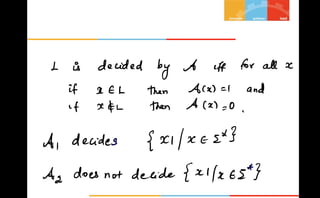 L is decided by A iff for all x
if x ∈ L then A(x) = 1 and
if x ∉ L then A(x) = 0.
A₁ decides { x1 / x ∈ Σ* }
A₂ does not decide { x1 / x ∈ Σ* }